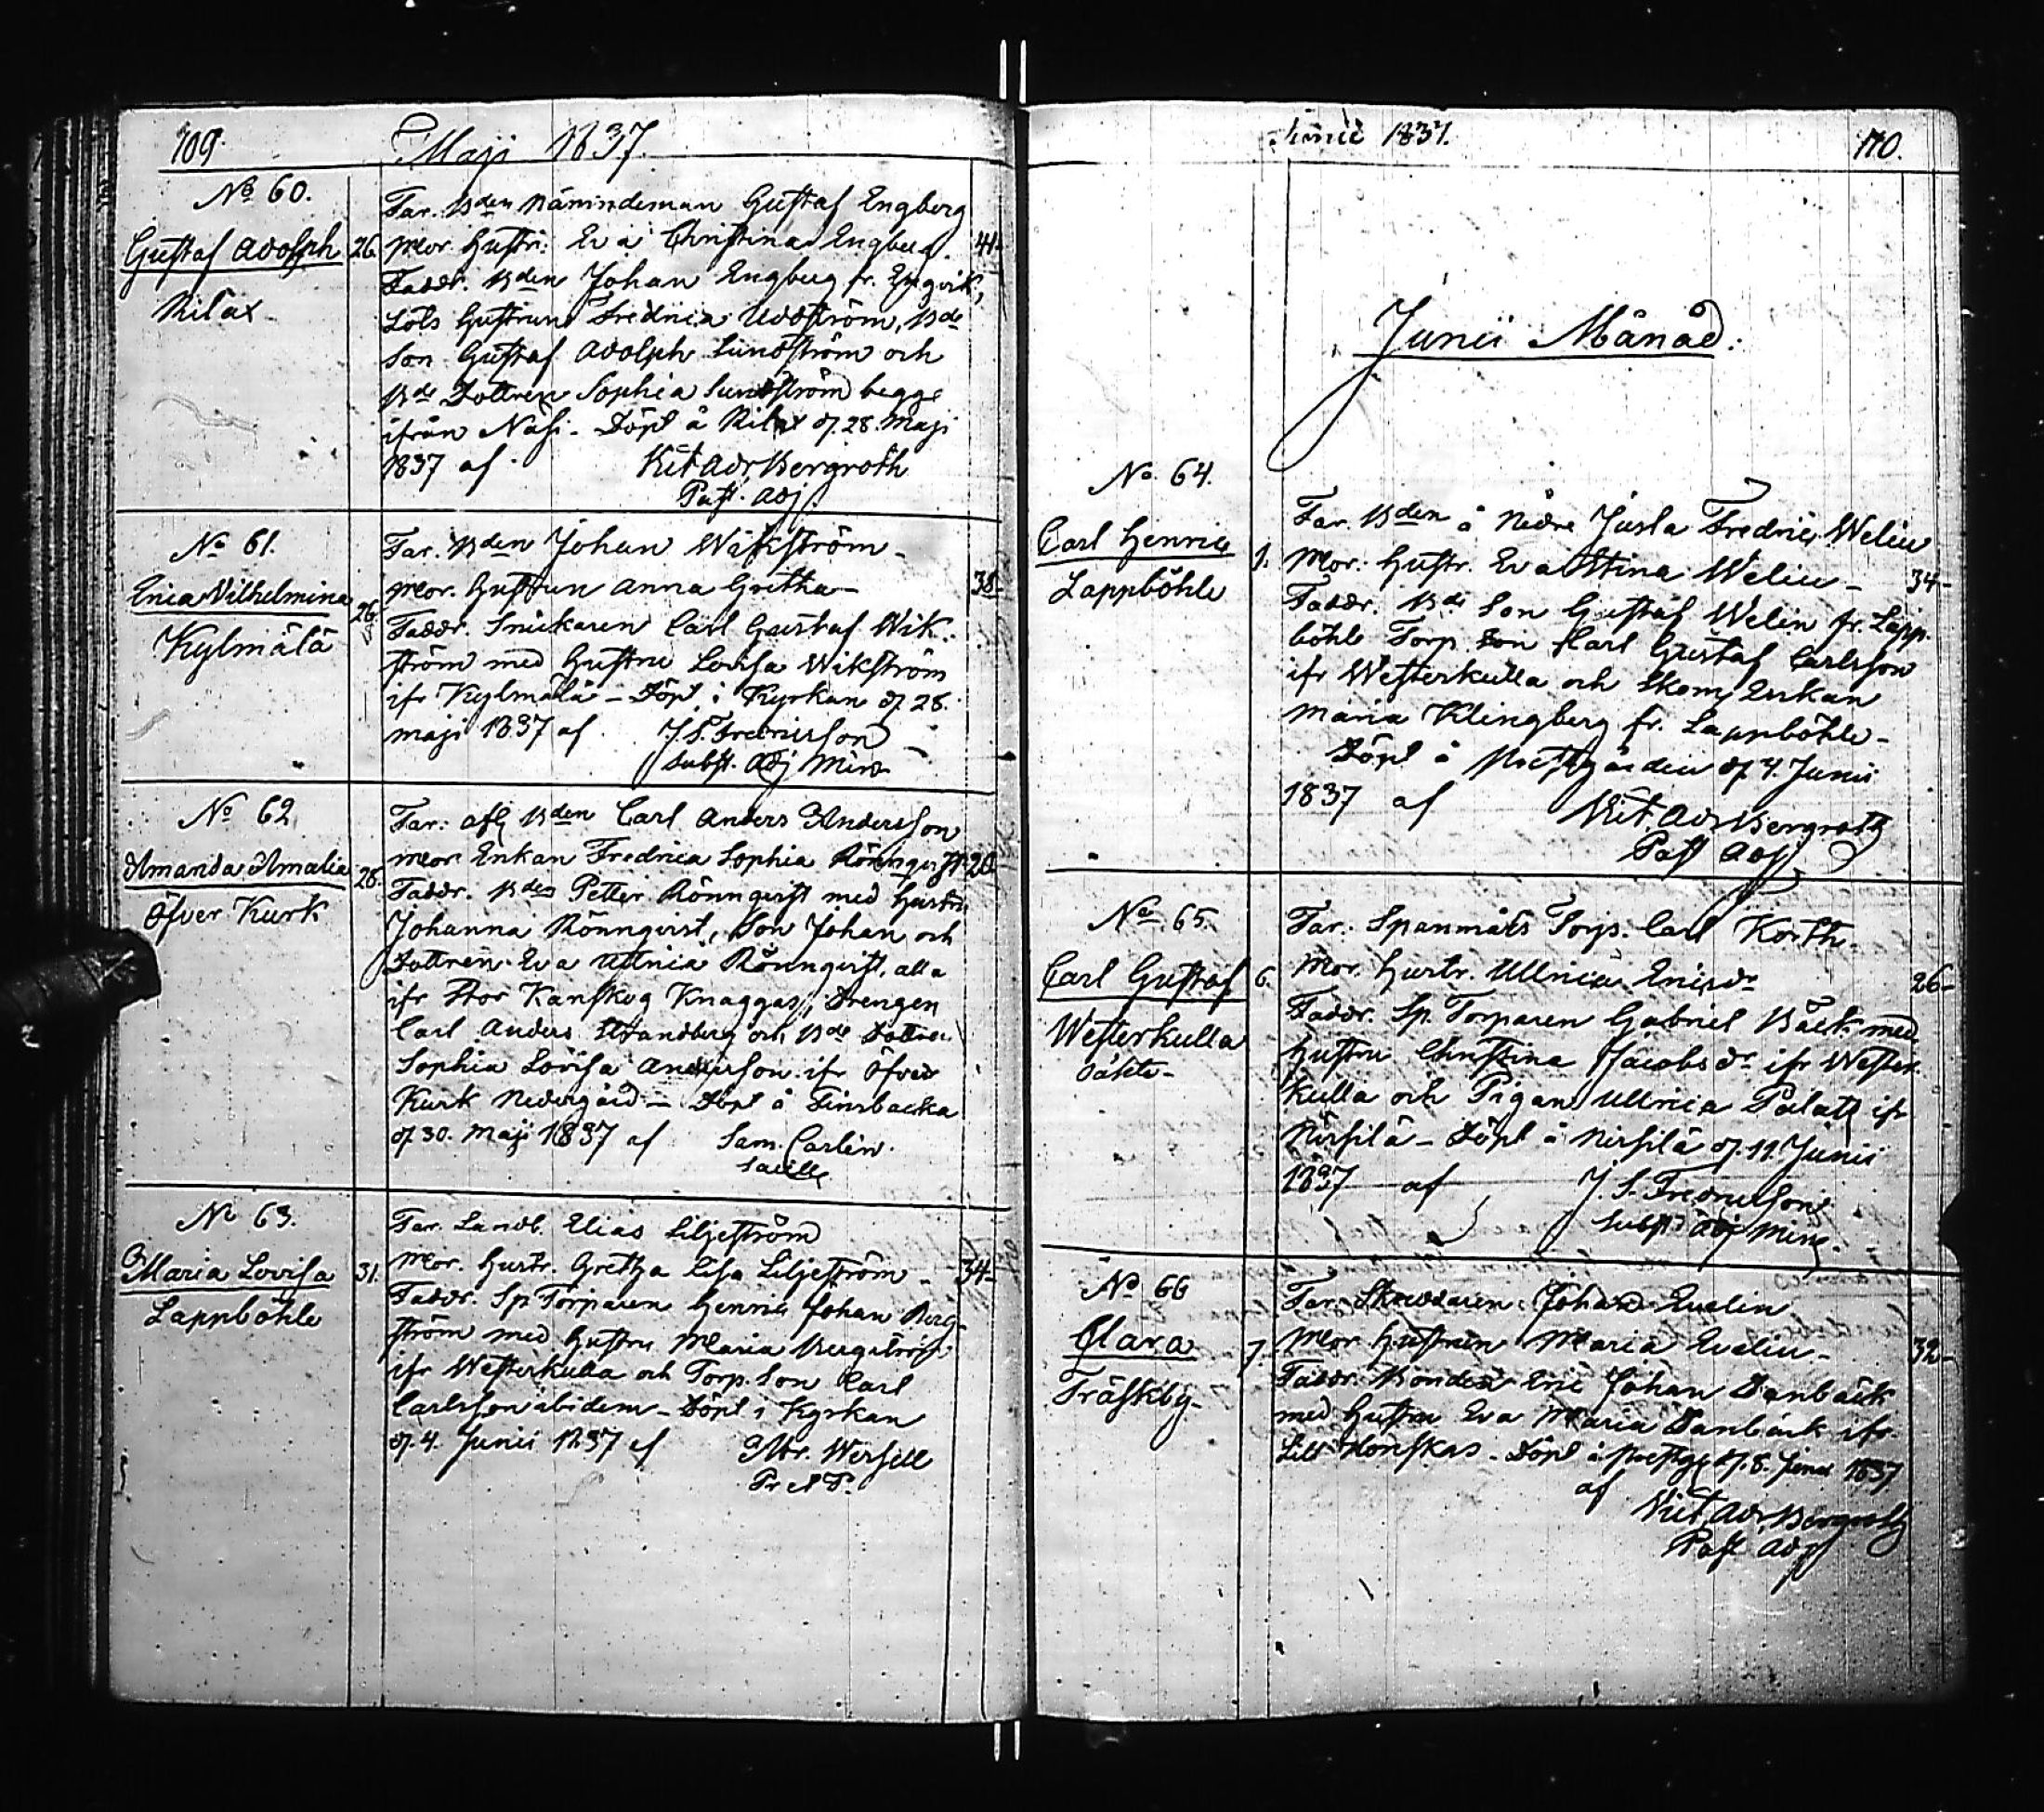 109.
Maji 1837.
No 60.
Gustaf Adolph
Rilax
26
Far. Bden Nämndeman Gustaf Engberg
Mor. Hustr. Eva Christina Engberg. 41-
Faddr. Bden Johan Engberg fr. Engvik,
Löts Hustrun Fredrica Uddström, Bde
Son Gustaf Adolph Sundström och
Bde Dottren Sophia Sundström begge
ifrån Näse - Döpt å Rilax d. 28. Maji
1837 af Vict Adr Bergroth
Past. Adj.
No 61.
Erica Vilhelmina
Kylmälä
26.
Far. Bden Johan Wäkström -
Mor. Hustrun Anna Gretha - 38-
Faddr. Snickaren Carl Gustaf Wik-
ström med Hustru Lovisa Wikström
ifr Kylmälä - Döpt i Kyrkan d. 28.
Maji 1837 af J. S. Fredricson
Subst. Adj Min.
No 62
Amanda Amalia
Öfver Kurk
28.
Far: afl. Bden Carl Anders Andersson
Mor: Enkan Fredrica Sophia Rönnqvist 20
Faddr. Bden Petter Rönnqvist med Hustru
Johanna Rönnqvist, Son Johan och
Dottren Eva Ulrica Rönnqvist, alla
ifr Stor Kanskog Knaggas, Drengen
Carl Anders Strandberg och Bde Dottren
Sophia Lovisa Andersson ifr Öfver
Kurk Nedergård - Döpt å Finsbacka
d. 30. Maji 1837 af Sam. Carlin.
Sacell.
No 63.
Maria Lovisa
Lappböhle
31.
Far. Landb. Elias Liljeström
Mor. Hustr. Gretha Lisa Liljeström - 34-
Faddr. Sp Torparen Henric Johan Berg-
ström med Hustru Maria Bergström
ifr Westerkulla och Torp. Son Carl
Carlsson ibidem - Döpt i Kyrkan
d. 4. Junii 1837 af Abr. Wersell
Pr et P.
Junii 1837.
110.
Junii Månad:
No 64.
Carl Henric
Lappböhle
1.
Far. Bden å Nedre Jusla Fredric Welin
Mor: Hustr. Eva Stina Welin - 34-
Faddr. Bde Son Gustaf Welin fr. Lapp-
böhle Torp. Son Karl Gustaf Carlsson
ifr Westerkulla och Skom. Enkan
Maria Klingberg fr. Lappböhle -
Döpt å Prestgården d. 4. Junii
1837 af Vict. Adr Bergroth
Past Adj
No 65.
Carl Gustaf
Westerkulla
6.
Far: Spanmåls Torp. Carl Korth.
Mor. Hustr. Ullrica Ericsdr 26-
Faddr. Sp. Torparen Gabriel Bäck med
Hustru Christina Jacobsdr ifr Wester-
kulla och Pigan Ullrica Palatz ifr
Nirsilä - Döpt å Nirsilä d. 11. Junii
1837 af J. S. Fredricson
Subst Adj Min.
No 66
Clara
Träskby -
7.
Far. Skreddaren Johan Evelin
Mor Hustrun Maria Evelin - 32-
Faddr. Bonden Eric Johan Danbäck
med Hustru Eva Maria Danbäck ifr
Lill Honskas - Döpt i Prestg. d. 8. Junii 1837
af Vict. Adr. Bergroth
Past Adj